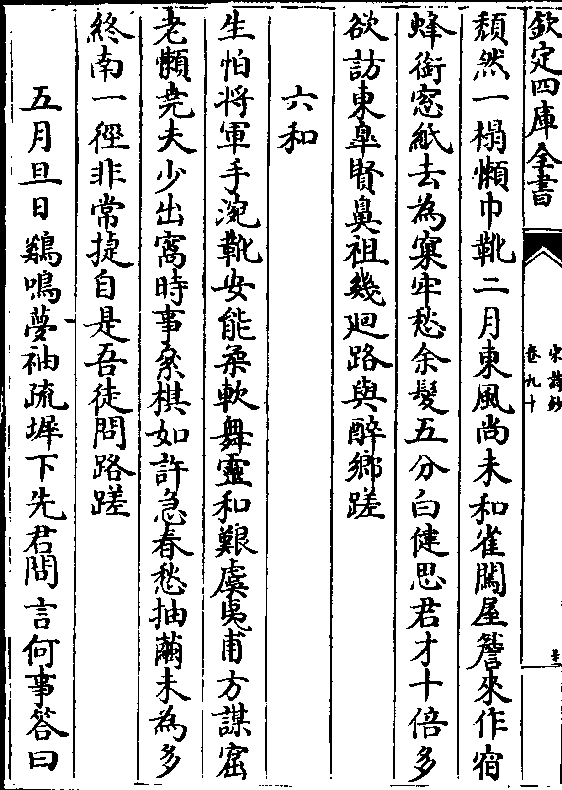 欽定四庫全書
宋詩鈔
卷九十
頹然一榻懶巾靴二月東風尚未和雀鬭屋簷來作宿
蜂銜窓紙去為窠牢愁余髮五分白健思君才十倍多
欲訪東臯賢鼻祖幾廻路與醉鄉蹉
六和
生怕将軍手涴靴安能柔軟舞靈和艱虞夷甫方謀窟
老懶堯夫少出窩時事象棋如許急春愁抽繭未為多
終南一徑非常捷自是吾徒問路蹉
五月旦日鷄鳴夢袖疏墀下先君問言何事答曰